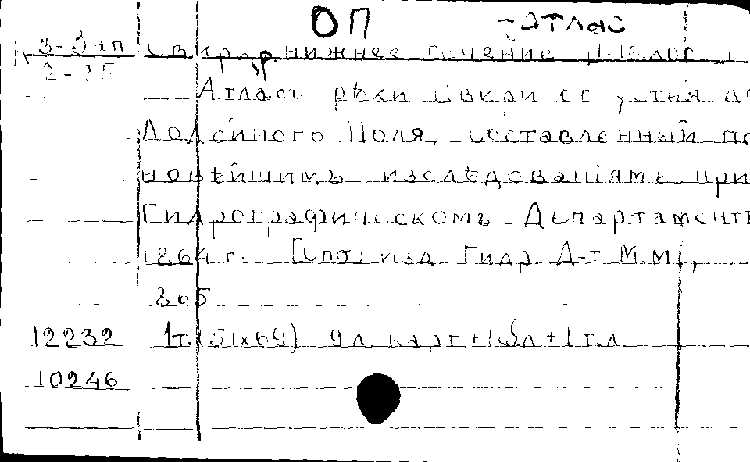 ОП - АТЛАС
З-Зап
2-35 Свирь, р. нижнее течение
Атлас рѣки Свири от устья до
Лодейного Поля, составленный по
новѣйшимъ изслѣдованіямъ при
Гидрографическомъ Департаменте
1864 г. [Спб] изд. Гидр. Д-т М.М.,
12232 1 т. (51х69) 9 л. карт + 1 т.л.
10246